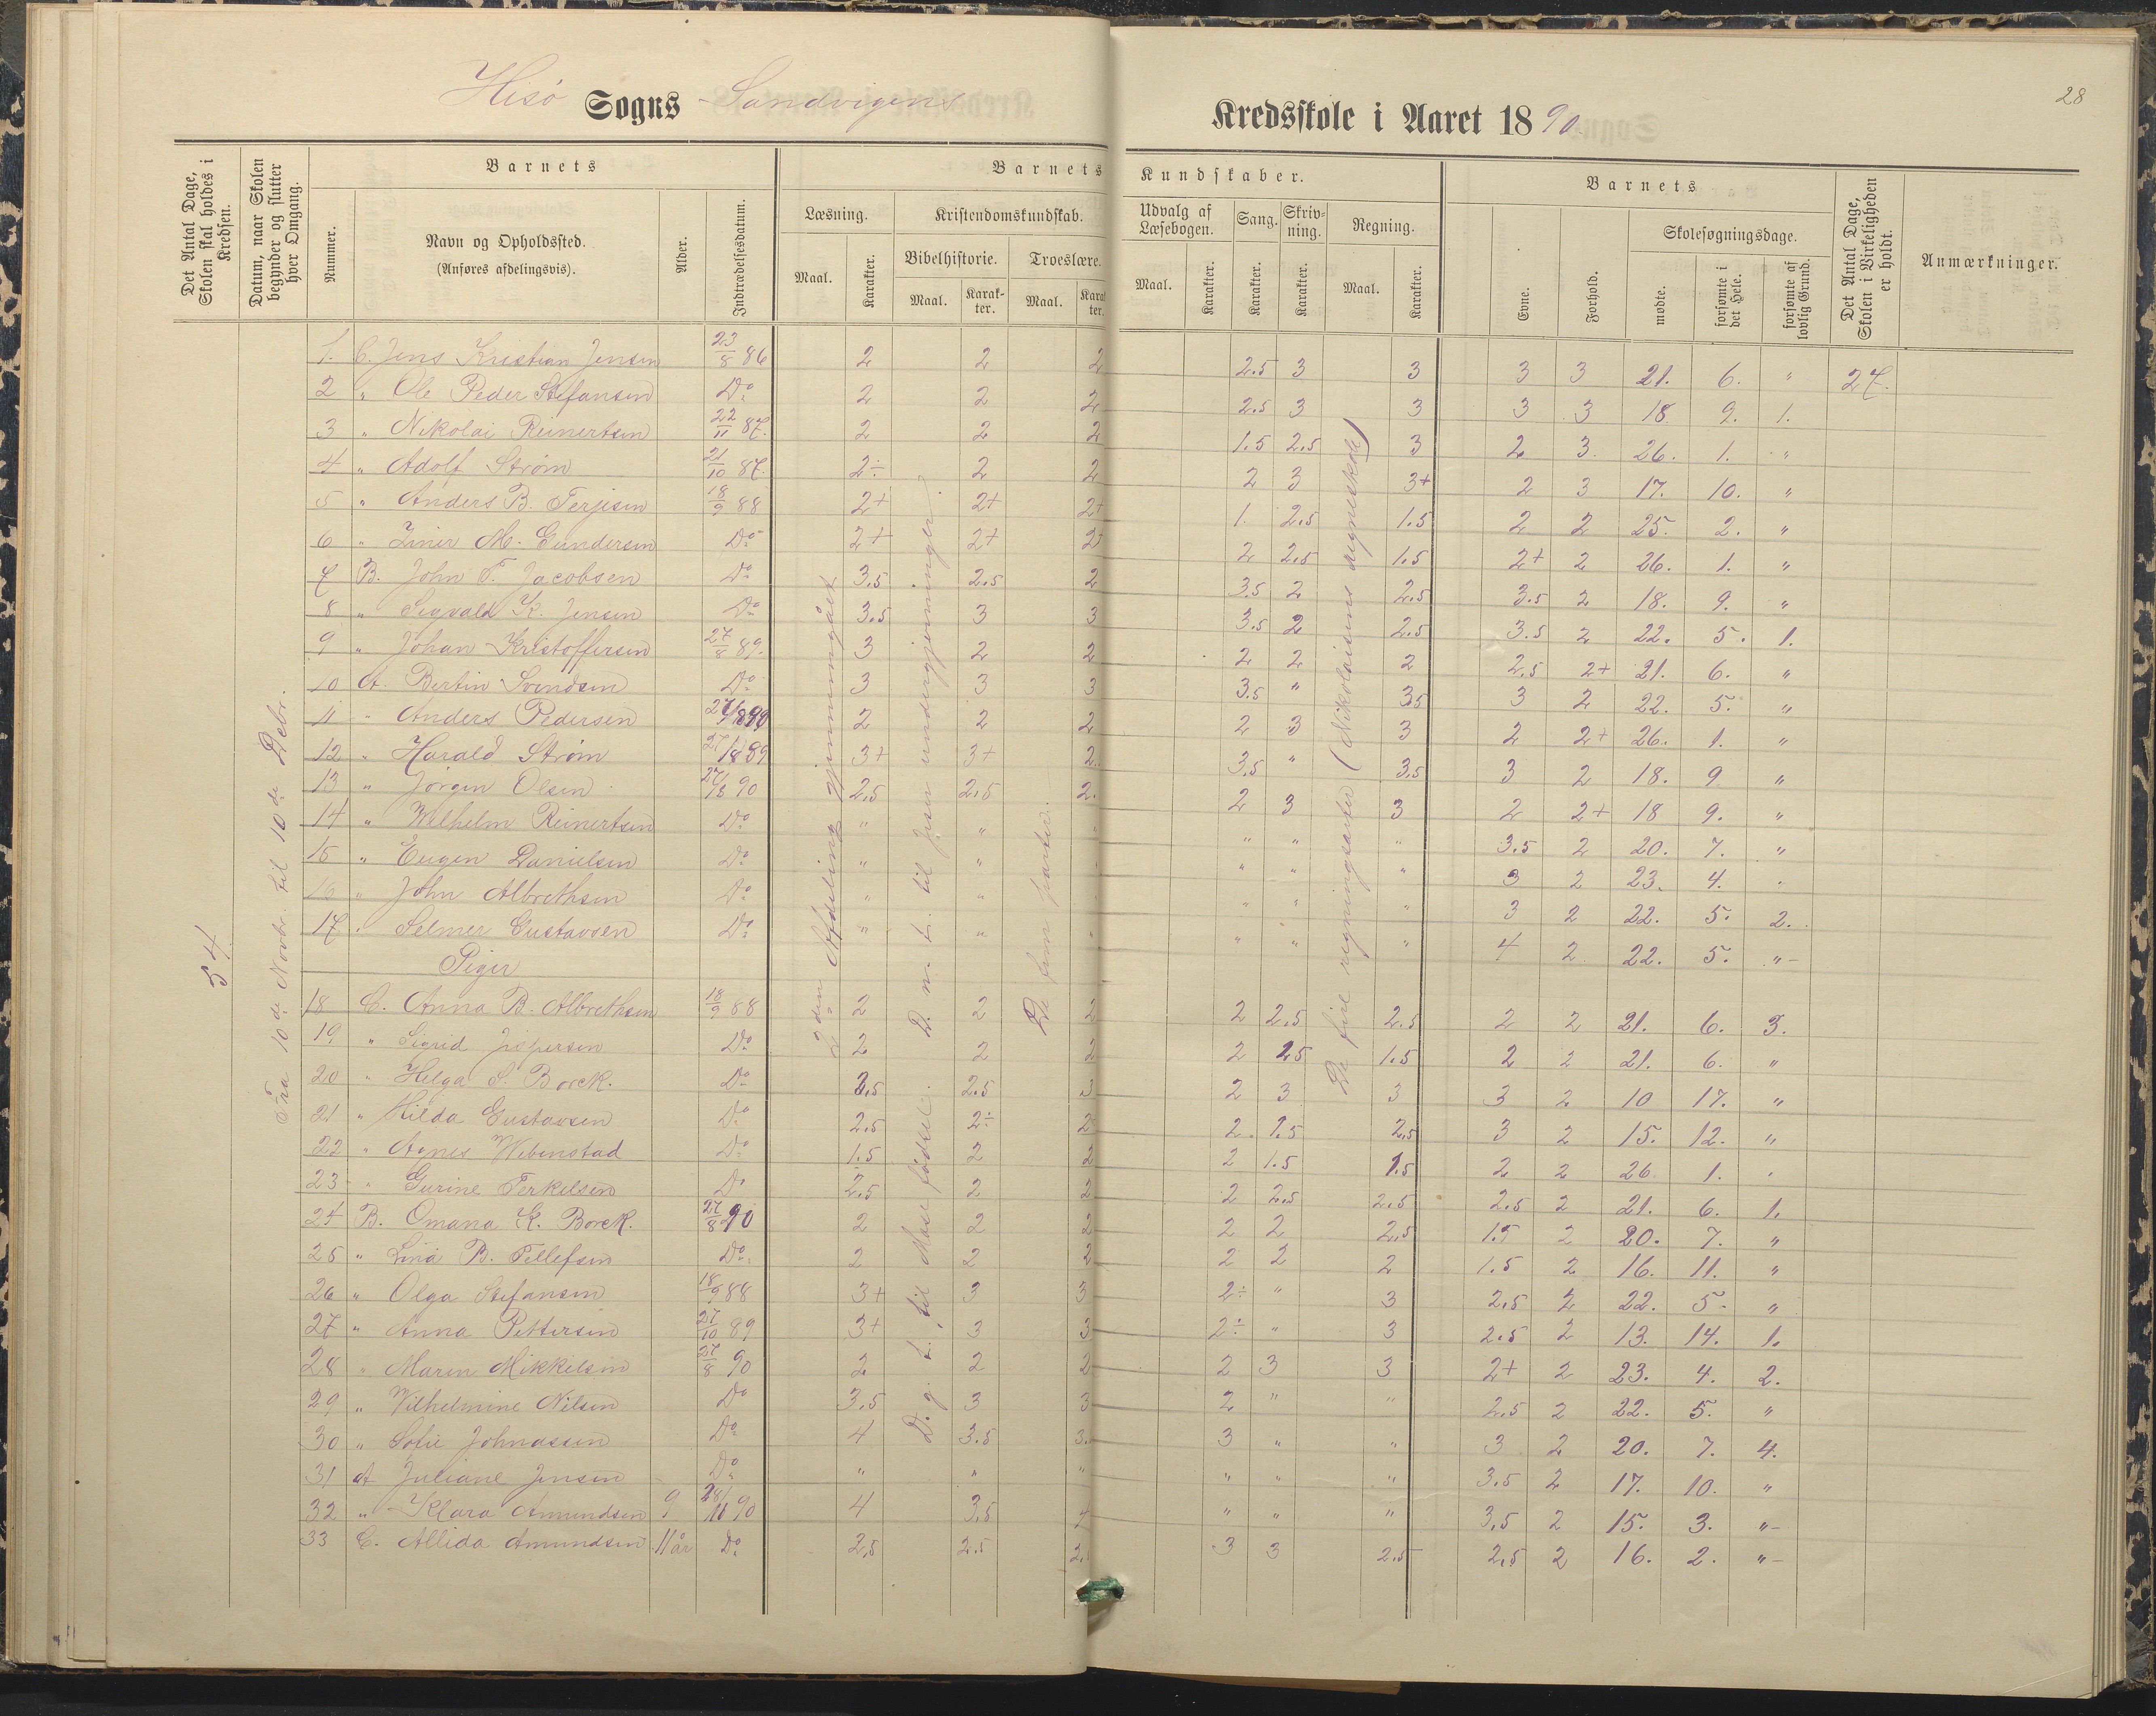 28
Hisø Sogns Sandvigens Kredsskole i Aaret 1890
Det Antal Dage, Skolen skal holdes i Kredsen.
Datum, naar Skolen begynder og slutter hver Omgang.
Barnets
Nummer.
Navn og Opholdssted.
(Anføres afdelingsvis).
Alder.
Indtrædelsesdatum.
Barnets Kundskaber.
Læsning.
Maal.
Karakter.
Kristendomskundskab.
Bibelhistorie.
Maal.
Karakter.
Troeslære.
Maal.
Karakter.
Udvalg af Læsebogen.
Maal.
Karakter.
Sang.
Karakter.
Skrivning.
Karakter.
Regning.
Maal.
Karakter.
Barnets
Evne.
Forhold.
Skolesøgningsdage.
mødte.
forsømte i det Hele.
forsømte af lovlig Grund.
Det Antal Dage, Skolen i Virkeligheden er holdt.
Anmærkninger.
54
Fra 10de Novbr. til 10de Debr.
2den Afdeling gjennemgået
D. n. t. til Jesu undergjerninger.
D. g. t., til Mose fødsel.
De fem parter.
De fire regningsarter (Nikolaisens regneskole)
1. C. Jens Kristian Jensen 23/8 86 2 2 2 2.5 3 3 3 3 21. 6. " 27.
2 " Ole Peder Stefansen Do 2 2 2 2.5 3 3 3 3 18 9. 1.
3 " Nikolai Reinertsen 22/11 87. 2 2 2 1.5 2.5 3 2 3. 26. 1. "
4 " Adolf Strøm 21/10 87. 2÷ 2 2 2 3 3+ 2 3 17. 10. "
5 " Anders B. Terjesen 18/9 88 2+ 2+ 2+ 1. 2.5 1.5 2 2 25. 2. "
6 " Einer M. Gundersen Do 2+ 2+ 2+ 2 2.5 1.5 2+ 2 26. 1. "
7 B. John T. Jacobsen Do 3.5 2.5 2 3.5 2 2.5 3.5 2 18. 9. "
8 " Sigvald K. Jensen Do 3.5 3 3 3.5 2 2.5 3.5 2 22. 5. 1.
9 " Johan Kristoffersen 27/8 89. 3 2 2 2 2 2 2.5 2+ 21. 6. "
10 A. Bertin Svendsen Do 3 3 3 3.5 " 3.5 3 2 22. 5. "
11 " Anders Pedersen 27/8 90 2 2 2 2 3 3 2 2+ 26. 1. "
12 " Harald Strøm 27/8 89 3+ 3+ 2. 3.5 " 3.5 3 2 18. 9 "
13 " Jørgen Olsen 27/8 90 2.5 2.5 2. 2 3 3 2 2+ 18 9. "
14 " Wilhelm Reinertsen Do " " " " " " 3.5 2 20. 7. "
15 " Eugen Danielsen Do " " " " " 3 2 23. 4. "
16 " John Albrethsen Do " " " " " 3 2 22. 5. 2.
17 " Selmer Gustavsen Do " " " " " " 4 2 22. 5. "
Piger
18 C. Anna B. Albrethsen 18/9 88 2 2 2 2 2.5 2.5 2 2 21. 6. 3.
19 " Sigrid Jispersen Do 2 2 2 2 2.5 1.5 2 2 21. 6. "
20 " Helga S. Borck. Do 2.5 2.5 3 2 3 3 3 2 10 17. "
21 " Hilda Gustavsen Do 2.5 2÷ 2 2. 1.5 2.5 3 2 15. 12. "
22 " Agnes Webenstad Do 1.5 2 2 2 1.5 1.5 2 2 26 1. "
23 " Gurine Terkelsen Do 2.5 2 2 2 2.5 2.5 2.5 2 21. 6. 1.
24 B. Omana K. Borck. 27/8 90 2 2 2 2 2 2.5 1.5 2 20. 7. "
25 " Lina B. Tellefsen Do 2 2 2 2 2 2 1.5 2 16. 11. "
26 " Olga Stefansen 18/9 88 3+ 3 3 2÷ " 3 2.5 2 22. 5. "
27 " Anna Pettersen 27/10 89 3+ 3 3 2÷ " 3 2.5 2 13. 14. 1.
28 " Maren Mikkelsen 27/8 90 2 2 2 2 3 3 2+ 2 23. 4. 2.
29 " Vilhelmine Nilsen Do 3.5 3 3 2 " " 2.5 2 22. 5. "
30 " Sofie Johnassen Do 4 3.5 3. 3 " " 3 2 20. 7. 4.
31 A Juliane Jensen Do " " " " " " 3.5 2 17. 10. "
32 " Klara Amundsen 9 28/10 90 4 3.5 " " " 3.5 2 15. 3. "
33 C. Allida Amundsen 11 år Do 2.5 2.5 2. 3 3 2.5 2.5 2 16. 2. "